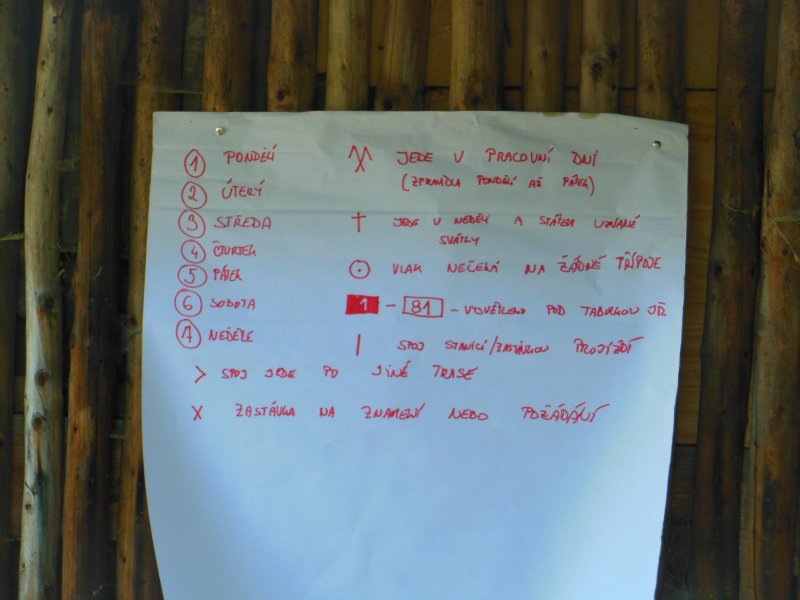 1 PONDĚLÍ
2 ÚTERÝ
3 STŘEDA
4 ČTVRTEK
5 PÁTEK
6 SOBOTA
7 NEDĚLE
> SPOJ JEDE PO JINÉ TRASE
X ZASTÁVKA NA ZNAMENÍ NEBO POŽÁDÁNÍ
⚒ JEDE V PRACOVNÍ DNÍ
(ZPRAVIDLA PONDĚLÍ AŽ PÁTEK)
† JEDE V NEDĚLI A STÁTEM UZNANÉ
SVÁTKY
⊙ VLAK NEČEKÁ NA ŽÁDNÉ PŘÍPOJE
1 - 81 - VYSVĚTLENO POD TABULKOU JŘ
| SPOJ STANICÍ/ZASTÁVKOU PROJÍŽDÍ